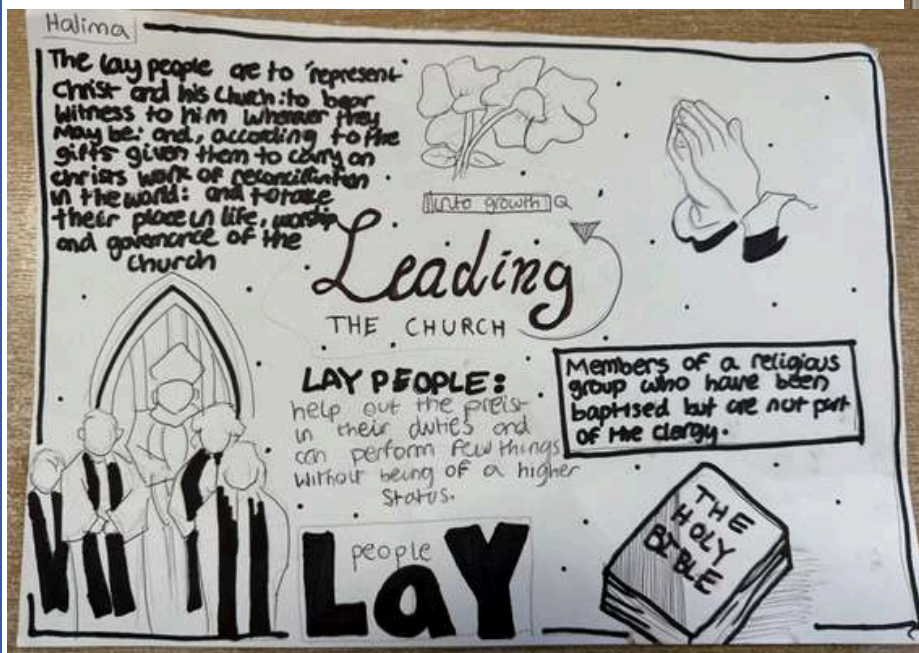 Halima
The lay people are to "represent
Christ and his Church: to bear
witness to him wherever they
may be: and, according to the
gifts given them to carry on
christs work of reconcilintion
in the world: and to take
their place in life, worship
and governance of the
church
unto growth
Leading
THE CHURCH
LAY PEOPLE:
help out the preist
in their duties and
can perform few things
without being of a higher
status.
Members of a religious
group who have been
baptised but are not part
of the clergy.
people
LaY
THE
HOLY
BIBLE